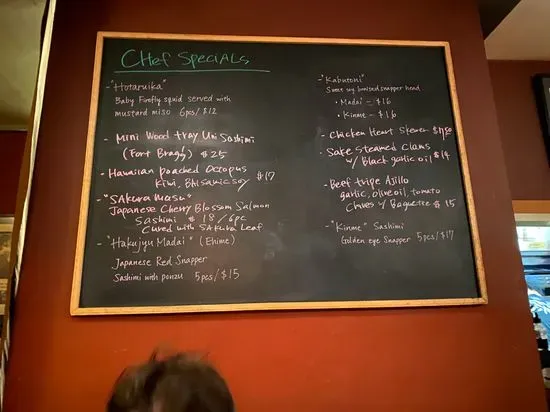 CHef Specials
- "Hotaruika"
Baby Firefly squid served with
mustard miso 6pcs/$12
- Mini Wood tray Uni Sashimi
(Fort Bragg) $25
- Hawaiian poached Octopus
Kiwi, Balsamic soy $17
- "SAkura masu"
Japanese Cherry Blossom Salmon
Sashimi $18/6pc
Cured with SAkura Leaf
- "Hakujyu Madai" (Ehime)
Japanese Red Snapper
Sashimi with ponzu 5pcs/$15
- "Kabutoni"
Sweet soy braised snapper head
• Madai - $16
• Kinme - $16
- Chicken Heart Skewer
- Sake steamed Clams
w/ Black garlic oil $14
- Beef tripe Ajillo
garlic, olive oil, tomato
Chives w/ Baguette $15
- "Kinme" Sashimi
Golden eye Snapper 5pcs/$17